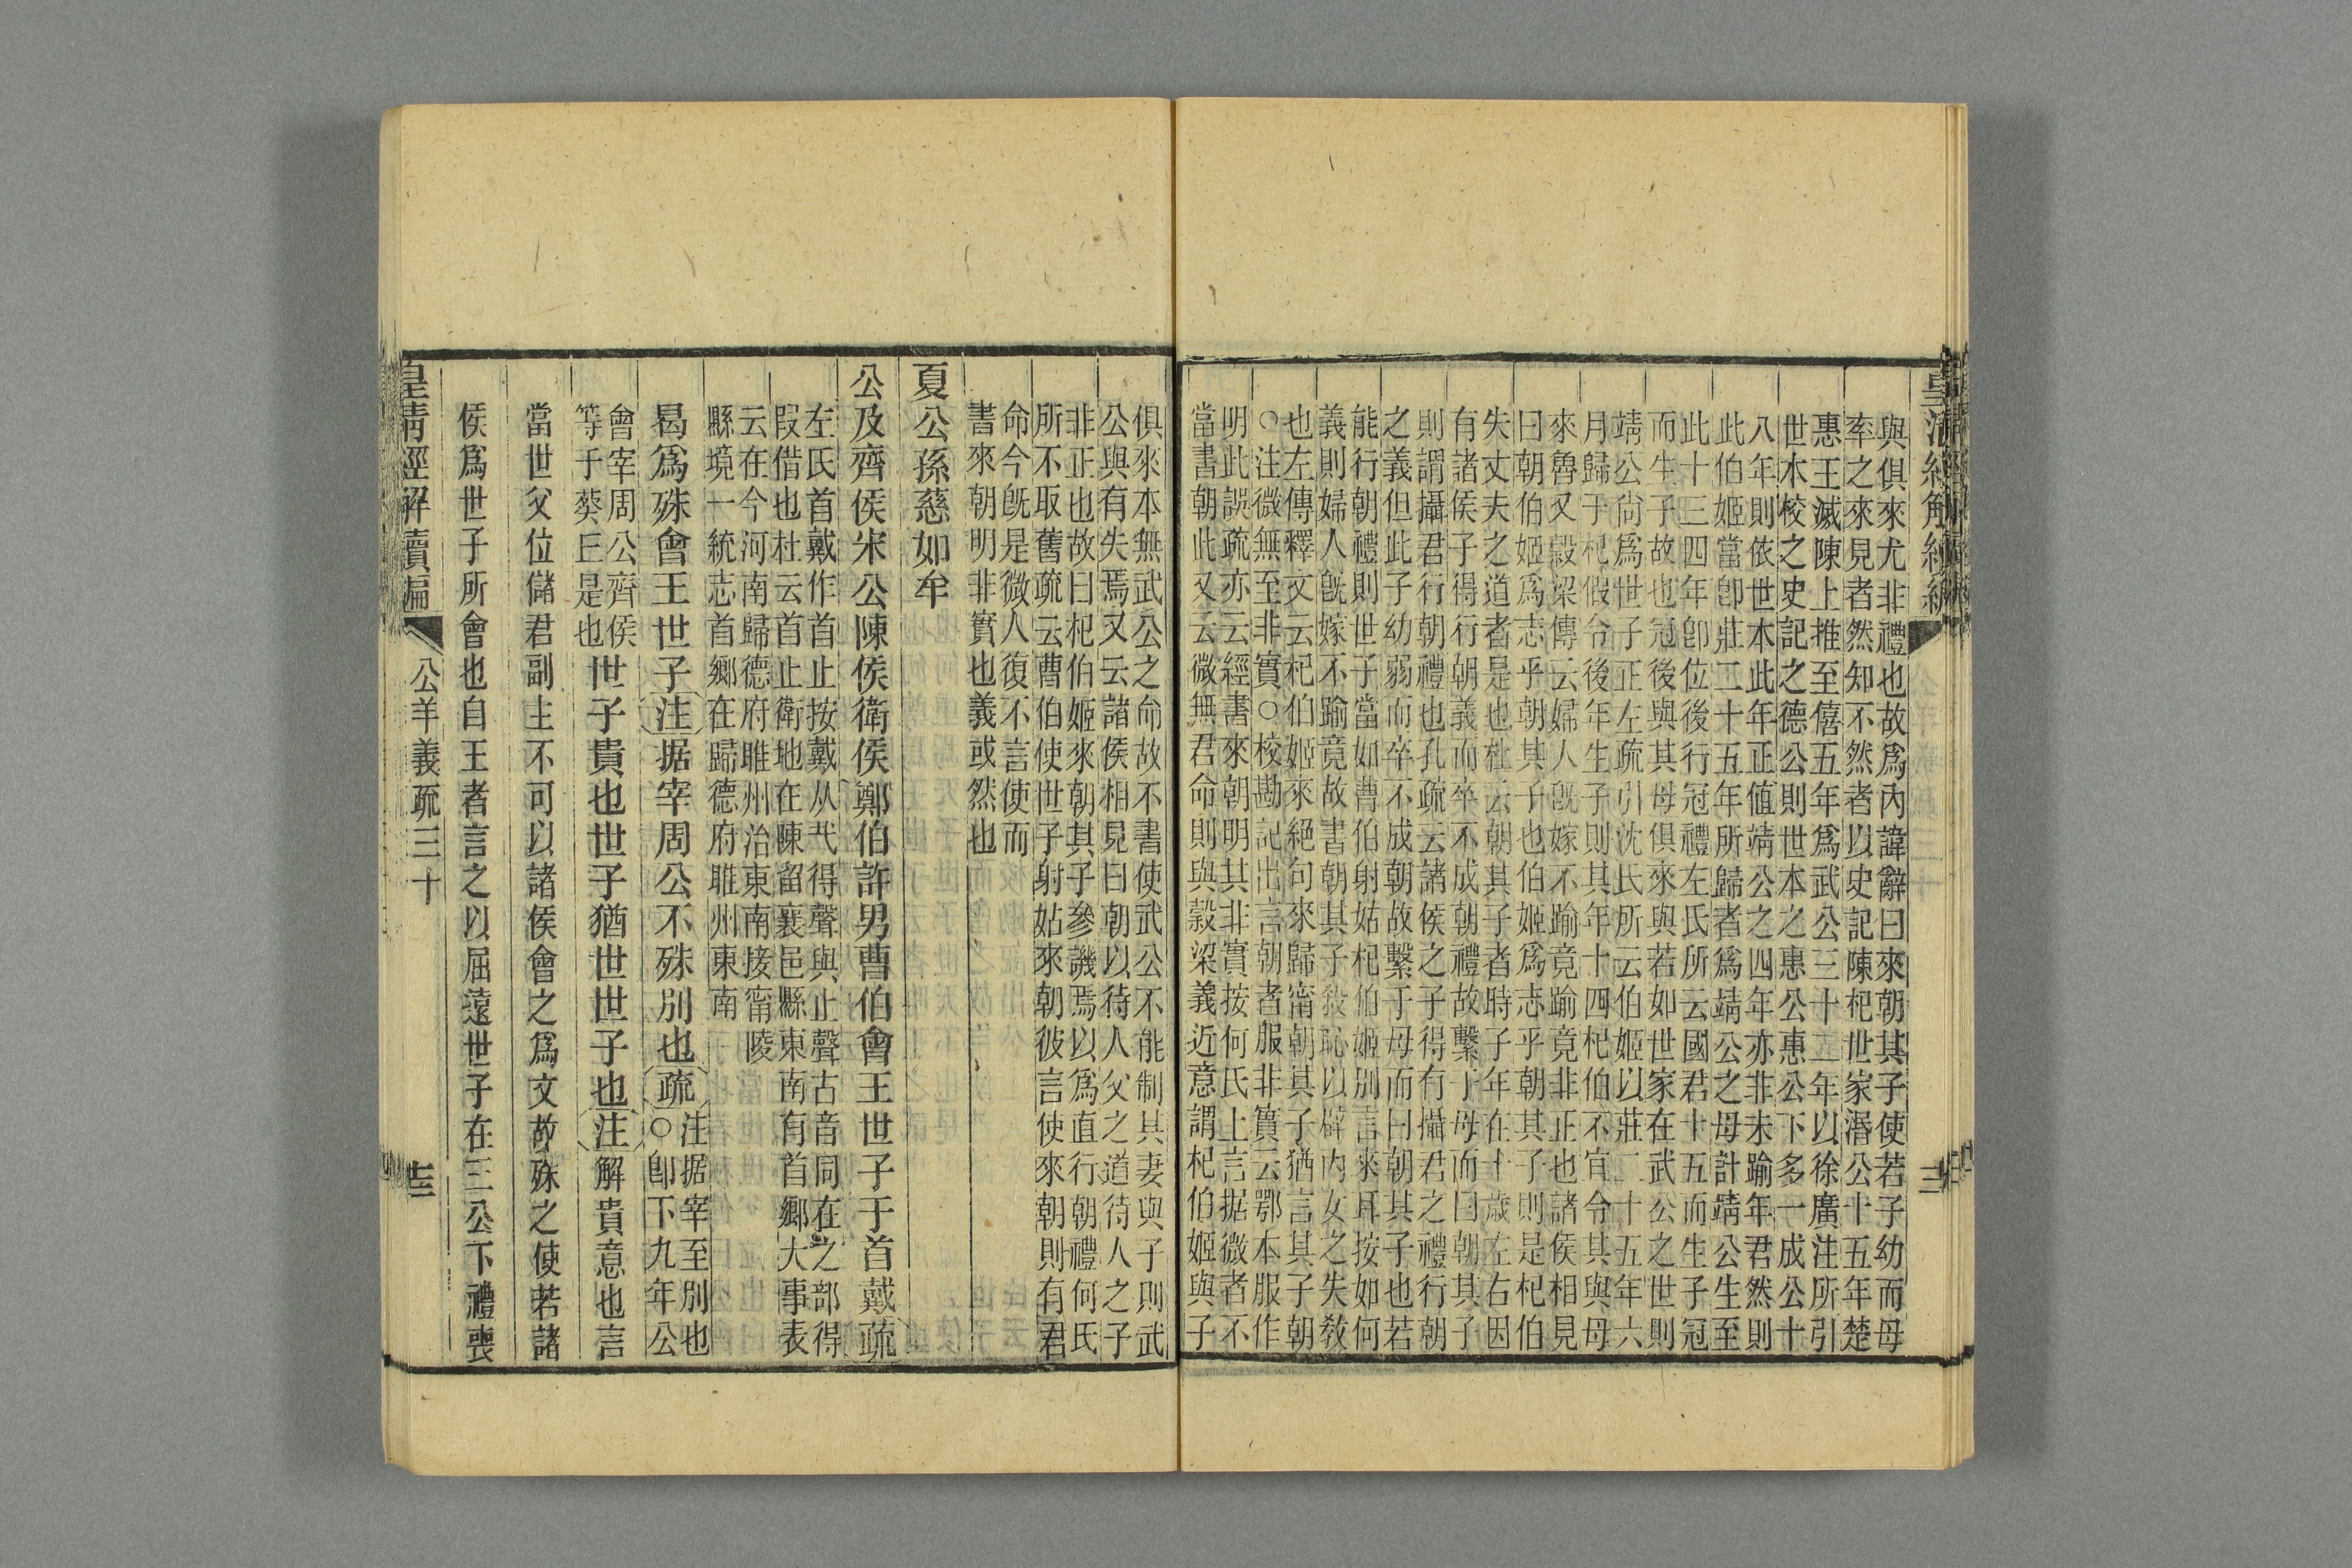 與俱來尤非禮也故爲內諱辭曰來朝其子使若子幼而母
率之來見者然知不然者以史記陳杞世家湣公十五年楚
惠王滅陳上推至僖五年爲武公三十二年以徐廣注所引
世本校之史記之德公則世本之惠公惠公下多一成公十
八年則依世本此年正值靖公之四年亦非未踰年君然則
此伯姬當卽莊二十五年所歸者爲靖公之母計靖公生至
此十三四年卽位後行冠禮左氏所云國君十五而生子冠
而生子故也冠後與其母俱來與若如世家在武公之世則
靖公尙爲世子正左疏引沈氏所云伯姬以莊二十五年六
月歸于杞假令後年生子則其年十四杞伯不宜令其與母
來魯又穀梁傳云婦人旣嫁不踰竟踰竟非正也諸侯相見
曰朝伯姬爲志乎朝其子也伯姬爲志乎朝其子則是杞伯
失夫之道者是也杜云朝其子者時子年在十歲左右因
有諸侯子得行朝義而卒不成朝禮故繫于母而曰朝其子
則謂攝君行朝禮也孔疏云諸侯之子得有攝君之禮行朝
之義但此子幼弱而卒不成朝故繫于母而曰朝其子也若
能行朝禮則世子當如曹伯射姑杞伯姬別言來耳按如何
義則婦人旣嫁不踰竟故書朝其子殺恥以辟內女之失敎
也左傳釋文云杞伯姬來絕句來歸甯朝其子猶言其子朝
○注微無至非實○校勘記出言朝者服非實云鄂本服作
明此誤疏亦云經書來朝明其非實按何氏上言据微者不
當書朝此又云微無君命則與穀梁義近意謂杞伯姬與子
俱來本無武公之命故不書使武公不能制其妻與子則武
公與有失焉又云諸侯相見曰朝以待人父之道待人之子
非正也故曰杞伯姬來朝其子參譏焉以爲直行朝禮何氏
所不取舊疏云曹伯使世子射姑來朝彼言使來朝則有君
命今旣是微人復不言使而
書來朝明非實也義或然也
夏公孫慈如牟
公及齊侯宋公陳侯衛侯鄭伯許男曹伯會王世子于首戴疏
左氏首戴作首止按戴从𢦏得聲與止聲古音同在之部得
叚借也杜云首止衛地在陳留襄邑縣東南有首鄉大事表
云在今河南歸德府睢州治東南接甯陵
縣境一統志首鄉在歸德府睢州東南
曷爲殊會王世子注据宰周公不殊別也疏注据宰至別也
○卽下九年公
會宰周公齊侯
等于葵丘是也世子貴也世子猶世世子也注解貴意也言
當世父位儲君副主不可以諸侯會之爲文故殊之使若諸
侯爲世子所會也自王者言之以屈遠世子在三公下禮喪
皇清經解續編
公羊義疏三十